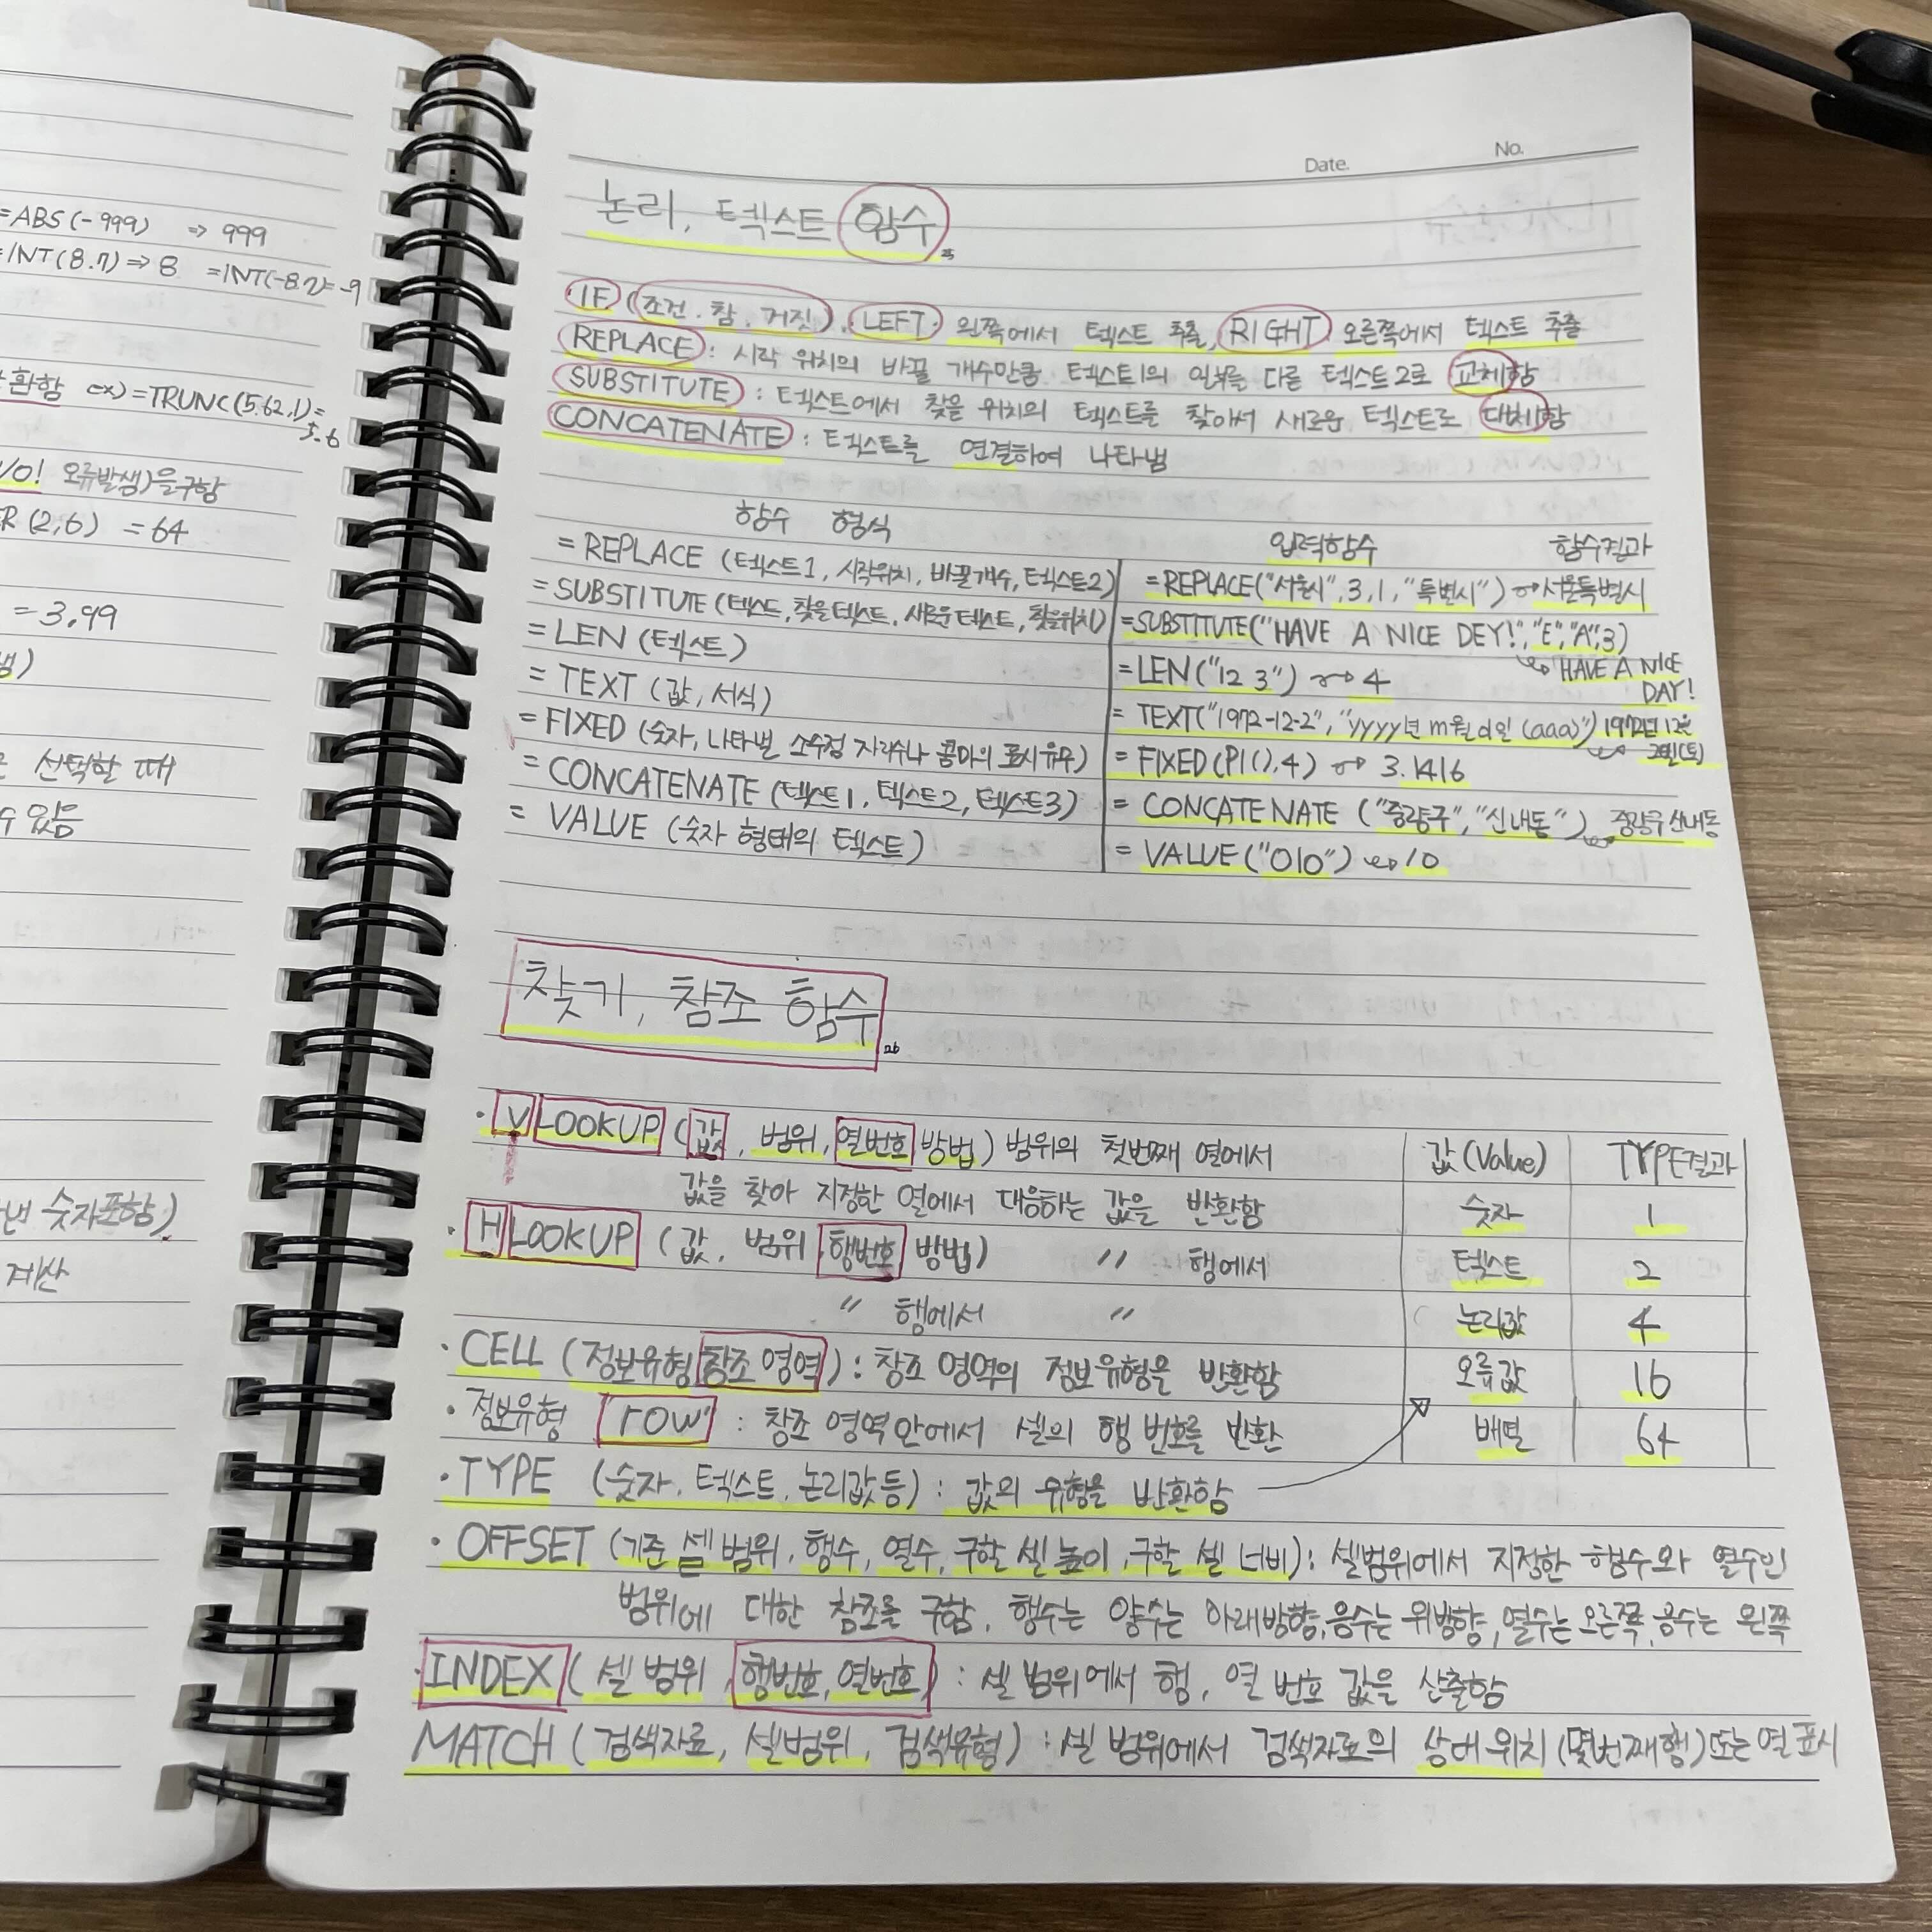 =ABS(-999) ⇒ 999
=INT(8.7)⇒8 =INT(-8.2)=-9
환함 ex)=TRUNC(5.62,1)=
5.6
/0! 오류발생)을구함
R(2,6) =64
=3.99
선택할 때
수 있음
숫자포함)
계산
Date. No.
논리, 텍스트 함수
25
IF (조건, 참, 거짓), LEFT: 왼쪽에서 텍스트 추출, RIGHT: 오른쪽에서 텍스트 추출
REPLACE: 시작 위치의 바꿀 개수만큼 텍스트1의 일부를 다른 텍스트2로 교체함
SUBSTITUTE: 텍스트에서 찾을 위치의 텍스트를 찾아서 새로운 텍스트로 대치함
CONCATENATE: 텍스트를 연결하여 나타냄
함수 형식 입력함수 함수결과
=REPLACE (텍스트1, 시작위치, 바꿀개수, 텍스트2) =REPLACE("서울시",3,1,"특별시") → 서울특별시
=SUBSTITUTE(텍스트, 찾을텍스트, 새로운텍스트, 찾을위치) =SUBSTITUTE("HAVE A NICE DEY!","E","A",3)
→ HAVE A NICE DAY!
=LEN (텍스트) =LEN("12 3") → 4
=TEXT (값, 서식) =TEXT("1972-12-2","yyyy년 m월 d일 (aaa)") → 1972년 12월 2일(토)
=FIXED (숫자, 나타낼 소수점 자리수나 콤마의 표시유무) =FIXED(PI(),4) → 3.1416
=CONCATENATE (텍스트1, 텍스트2, 텍스트3) =CONCATENATE ("중랑구","신내동") → 중랑구신내동
=VALUE (숫자 형태의 텍스트) =VALUE("010") → 10
찾기, 참조 함수
26
· VLOOKUP (값, 범위, 열번호, 방법) 범위의 첫번째 열에서
값을 찾아 지정한 열에서 대응하는 값을 반환함
· HLOOKUP (값, 범위, 행번호, 방법) 〃 행에서
〃 행에서 〃
· CELL (정보유형, 참조 영역) : 참조 영역의 정보유형을 반환함
· 정보유형 "row" : 참조 영역안에서 셀의 행 번호를 반환
· TYPE (숫자, 텍스트, 논리값등) : 값의 유형을 반환함
값(Value) TYPE결과
숫자 1
텍스트 2
논리값 4
오류값 16
배열 64
· OFFSET (기준 셀 범위, 행수, 열수, 구할 셀 높이, 구할 셀 너비) : 셀범위에서 지정한 행수와 열수인
범위에 대한 참조를 구함, 행수는 양수는 아래방향, 음수는 위방향, 열수는 오른쪽, 음수는 왼쪽
· INDEX (셀 범위, 행번호, 열번호) : 셀 범위에서 행, 열 번호 값을 산출함
MATCH (검색자료, 셀범위, 검색유형) : 셀 범위에서 검색자료의 상대 위치 (몇번째행)또는 열 표시